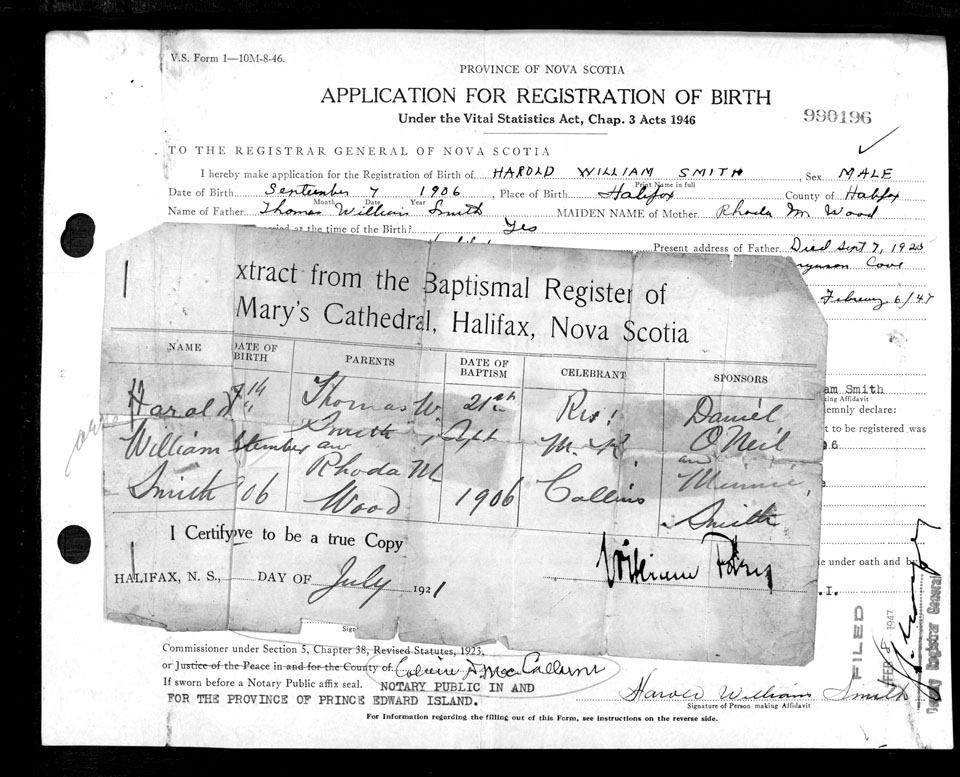 V.S. Form 1—10M-8-46.
PROVINCE OF NOVA SCOTIA
APPLICATION FOR REGISTRATION OF BIRTH
Under the Vital Statistics Act, Chap. 3 Acts 1946
990196
TO THE REGISTRAR GENERAL OF NOVA SCOTIA
I hereby make application for the Registration of Birth of HAROLD WILLIAM SMITH, Sex MALE
Print Name in full
Date of Birth September 7 1906, Place of Birth Halifax County of Halifax
Month Date Year
Name of Father Thomas William Smith MAIDEN NAME of Mother Rhoda M Wood
at the time of the Birth? Yes
Present address of Father Died Sept 7, 1923
Cove
February 6/47
xtract from the Baptismal Register of
Mary's Cathedral, Halifax, Nova Scotia
NAME DATE OF BIRTH PARENTS DATE OF BAPTISM CELEBRANT SPONSORS
Harold 7th Thomas W. 21st Rev. Daniel
William Smith Sept O'Neil
and and
Smith 06 Rhoda M Wood 1906 Collins Minnie Smith
I Certify to be a true Copy
HALIFAX, N. S., DAY OF July 1921
William
am Smith
ing Affidavit
emnly declare:
t to be registered was
6
e under oath and b
.I.
FILED
FEB 8 1947
Deputy Registrar General
Sig
Commissioner under Section 5, Chapter 38, Revised Statutes, 1923,
or Justice of the Peace in and for the County of Colvin A MacCallum
If sworn before a Notary Public affix seal. NOTARY PUBLIC IN AND
FOR THE PROVINCE OF PRINCE EDWARD ISLAND.
Harold William Smith
Signature of Person making Affidavit
For Information regarding the filling out of this Form, see instructions on the reverse side.